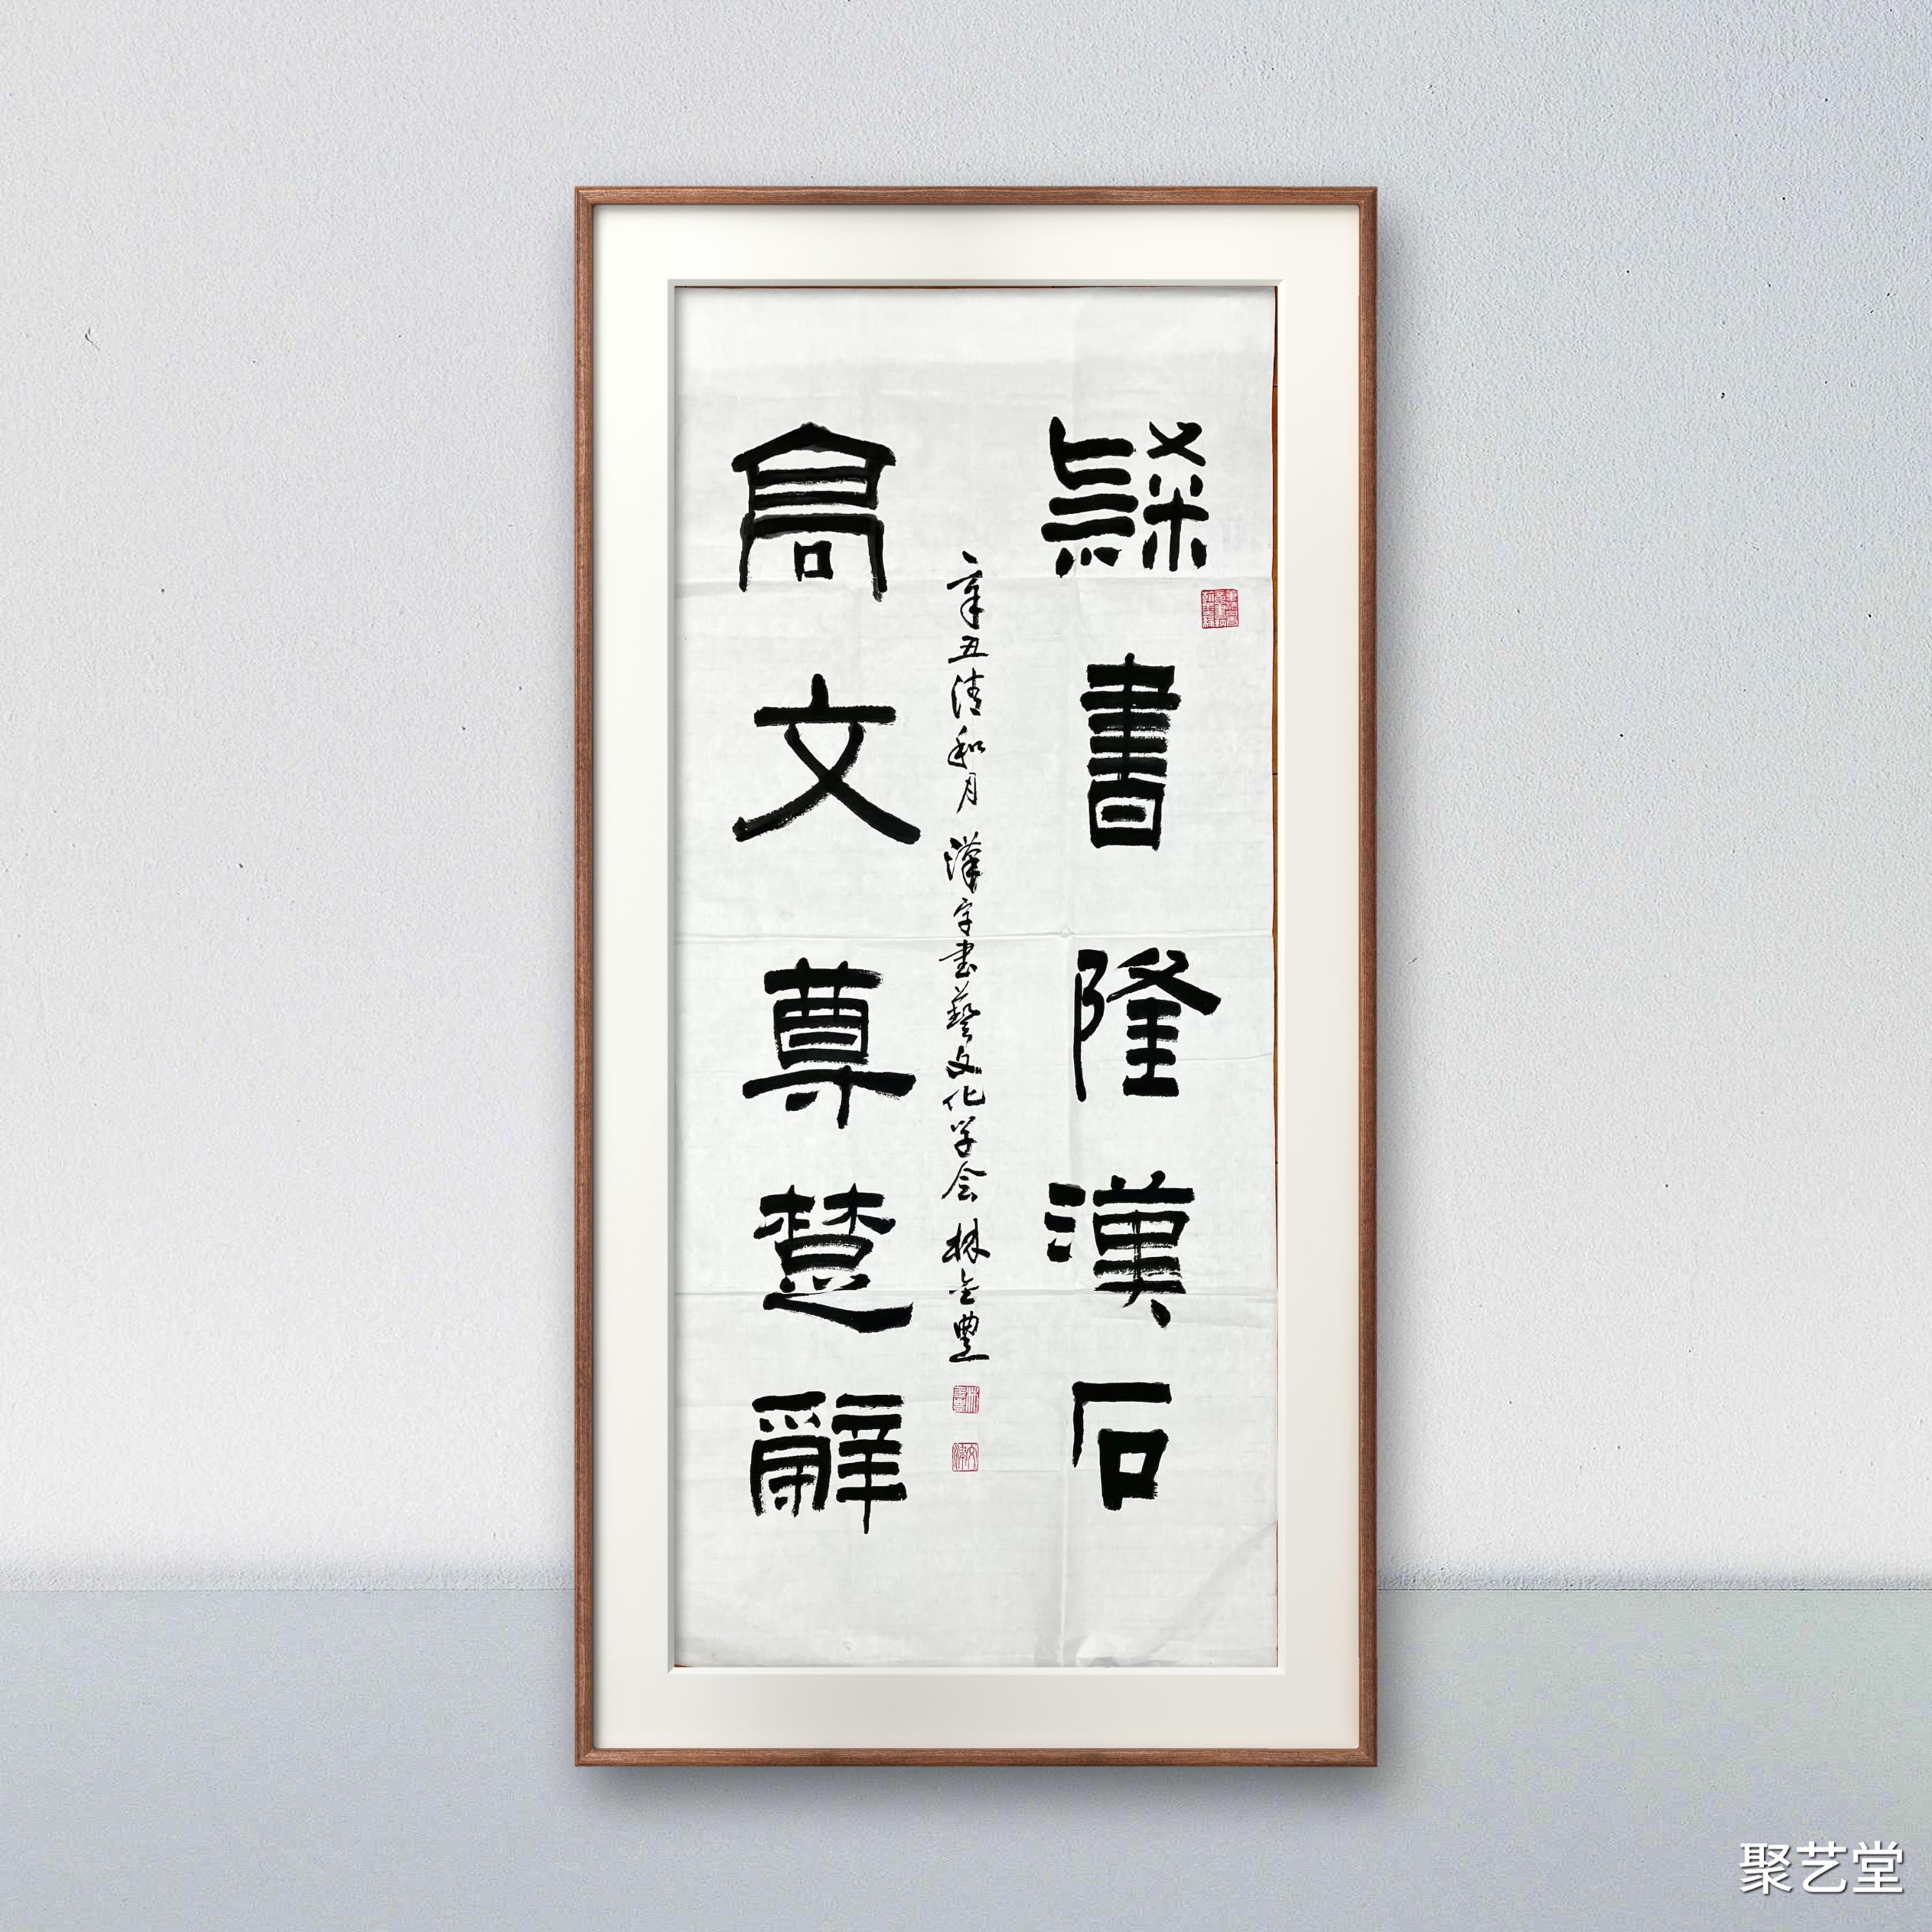 隸書隆漢石
高文尊楚辭
辛丑清和月 漢字书藝文化学会 林金豊
聚艺堂